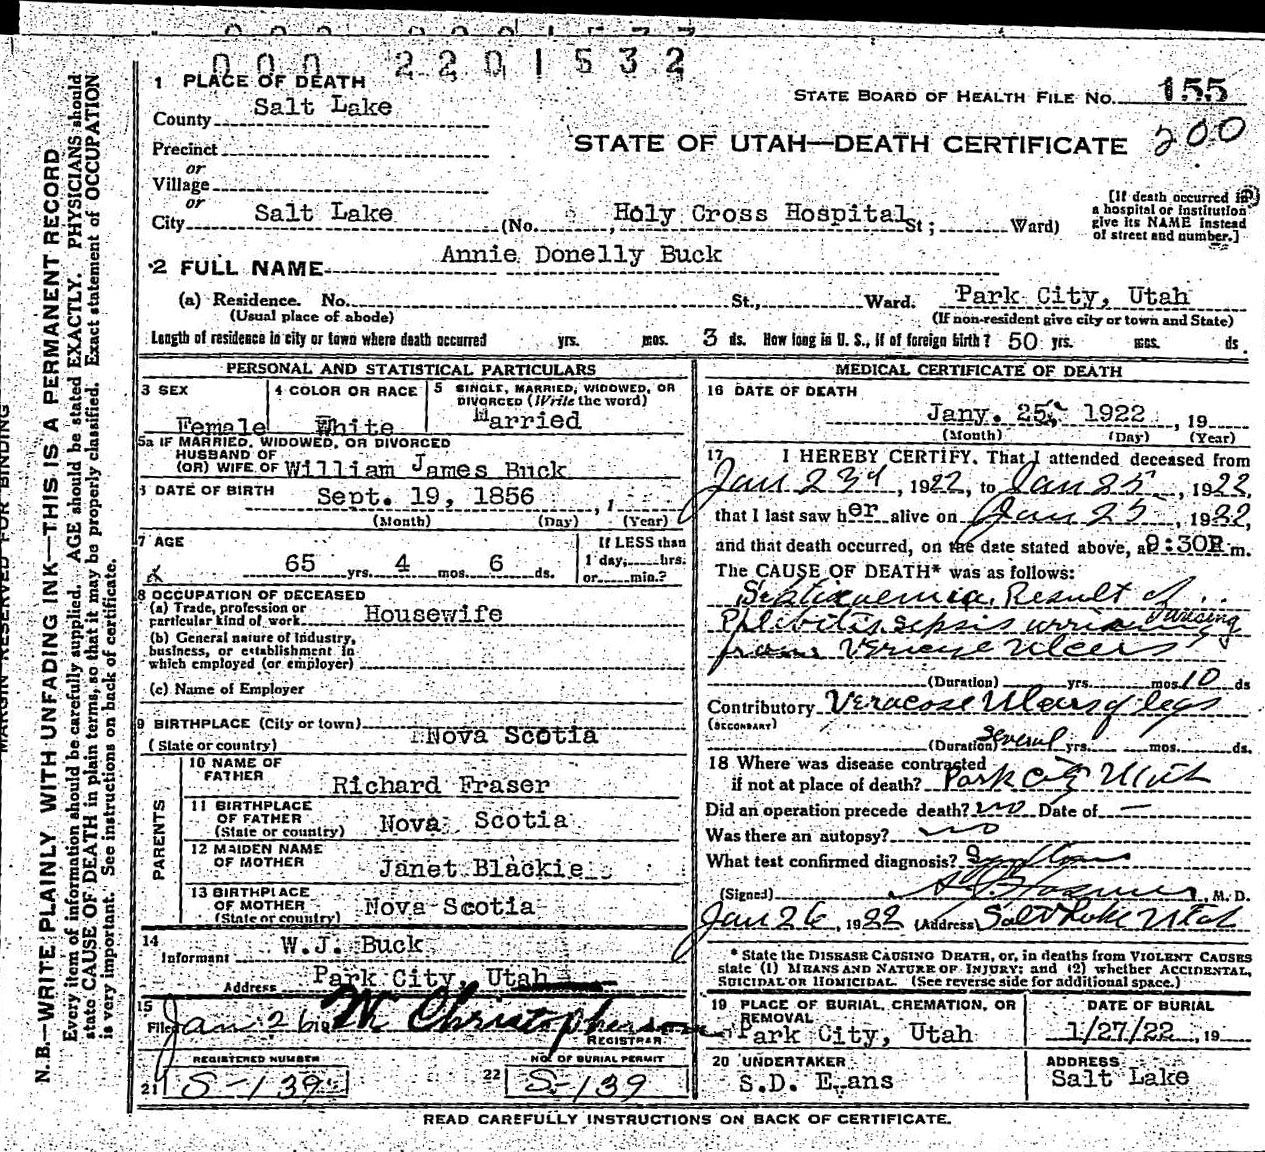 000 2201532
1 PLACE OF DEATH
STATE BOARD OF HEALTH FILE NO. 155
County Salt Lake
200
STATE OF UTAH—DEATH CERTIFICATE
Precinct
or
Village
or
City Salt Lake (No. , Holy Cross Hospital St; Ward)
[If death occurred in
a hospital or institution
give its NAME instead
of street and number.]
2 FULL NAME Annie Donelly Buck
(a) Residence. No. St., Ward. Park City, Utah
(Usual place of abode) (If non-resident give city or town and State)
Length of residence in city or town where death occurred yrs. mos. 3 ds. How long in U. S., if of foreign birth? 50 yrs. mos. ds.
PERSONAL AND STATISTICAL PARTICULARS
3 SEX Female
4 COLOR OR RACE White
5 SINGLE, MARRIED, WIDOWED, OR
DIVORCED (Write the word)
Married
5a IF MARRIED, WIDOWED, OR DIVORCED
HUSBAND OF
(OR) WIFE OF William James Buck
6 DATE OF BIRTH Sept. 19, 1856 , 1
(Month) (Day) (Year)
7 AGE
65 yrs. 4 mos. 6 ds.
If LESS than
1 day, hrs.
or min.?
8 OCCUPATION OF DECEASED
(a) Trade, profession or
particular kind of work Housewife
(b) General nature of industry,
business, or establishment in
which employed (or employer)
(c) Name of Employer
9 BIRTHPLACE (City or town)
(State or country) Nova Scotia
PARENTS
10 NAME OF
FATHER Richard Fraser
11 BIRTHPLACE
OF FATHER
(State or country) Nova Scotia
12 MAIDEN NAME
OF MOTHER Janet Blackie
13 BIRTHPLACE
OF MOTHER
(State or country) Nova Scotia
14
Informant W.J. Buck
Address Park City, Utah
15
Filed Jan 26 19 W Christopherson
REGISTRAR
REGISTERED NUMBER
21 S-139
NO. OF BURIAL PERMIT
22 S-139
MEDICAL CERTIFICATE OF DEATH
16 DATE OF DEATH
Jany. 25, 1922 , 19
(Month) (Day) (Year)
17 I HEREBY CERTIFY, That I attended deceased from
Jan 23d, 1922, to Jan 25, 1922,
that I last saw her alive on Jan 25, 1922,
and that death occurred, on the date stated above, at 9:30P m.
The CAUSE OF DEATH* was as follows:
Septicaemia. Result of
Phlebitis sepsis arising
from Ulcers
(Duration) yrs. mos. 10 ds
Contributory Veracose Ulcers of legs
(SECONDARY)
(Duration) Several yrs. mos. ds.
18 Where was disease contracted
if not at place of death? Park City Utah
Did an operation precede death? no Date of —
Was there an autopsy? no
What test confirmed diagnosis?
(Signed) , M. D.
Jan 26, 1922 (Address) Salt Lake Utah
* State the DISEASE CAUSING DEATH, or, in deaths from VIOLENT CAUSES
state (1) MEANS AND NATURE OF INJURY; and (2) whether ACCIDENTAL,
SUICIDAL OR HOMICIDAL. (See reverse side for additional space.)
19 PLACE OF BURIAL, CREMATION, OR
REMOVAL
Park City, Utah
DATE OF BURIAL
1/27/22 , 19
20 UNDERTAKER
S.D. Evans
ADDRESS
Salt Lake
READ CAREFULLY INSTRUCTIONS ON BACK OF CERTIFICATE.
MARGIN RESERVED FOR BINDING
N. B.—WRITE PLAINLY WITH UNFADING INK—THIS IS A PERMANENT RECORD
Every item of information should be carefully supplied. AGE should be stated EXACTLY. PHYSICIANS should
state CAUSE OF DEATH in plain terms, so that it may be properly classified. Exact statement of OCCUPATION
is very important. See instructions on back of certificate.